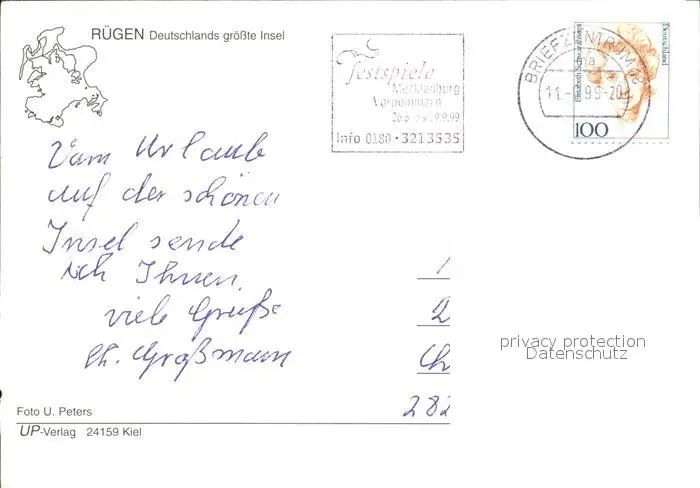 RÜGEN Deutschlands größte Insel
Festspiele
Mecklenburg
Vorpommern
Info 0180 · 3213535
BRIEFZENTRUM 18
11.-  99-20
Deutschland
Elisabeth Schwarzhaupt
100
Vom Urlaub
auf der schönen
Insel sende
ich Ihnen
viele Grüße
Ch. Großmann
1
2
Ch
282
privacy protection
Datenschutz
Foto U. Peters
UP-Verlag 24159 Kiel